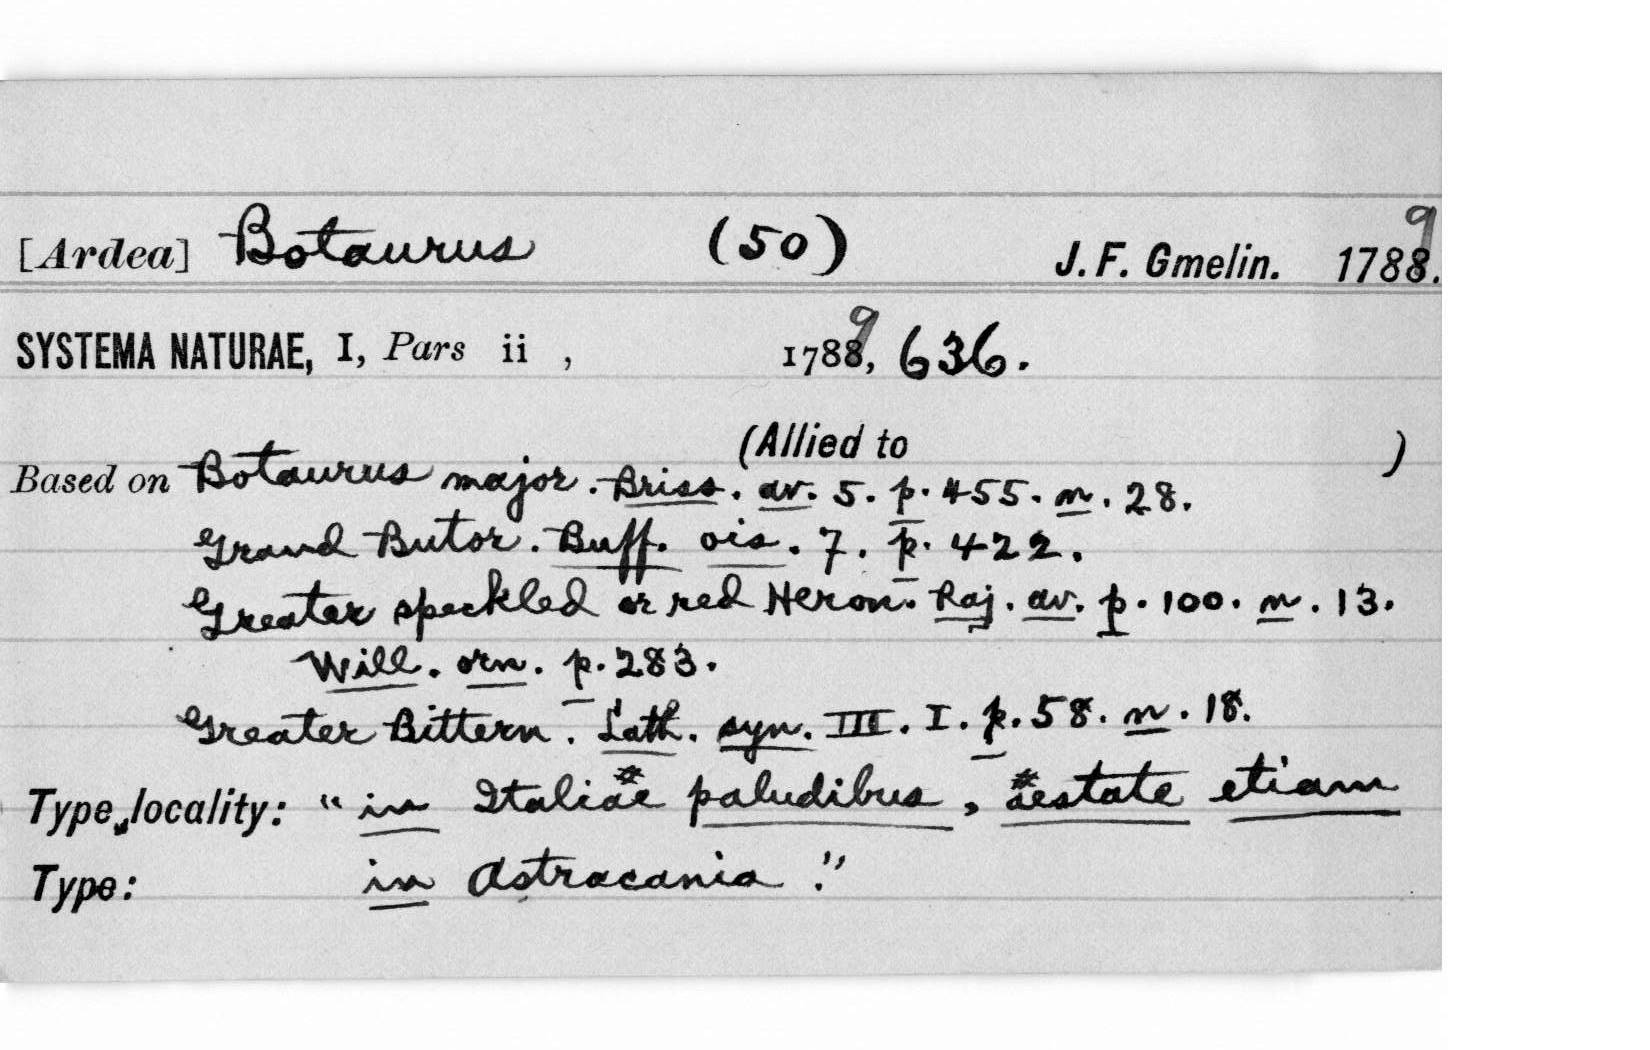 [Ardea] Botaurus (50) J. F. Gmelin. 1789.
SYSTEMA NATURAE, I, Pars ii , 1789, 636.
(Allied to )
Based on Botaurus major. Briss. av. 5. p. 455. n. 28.
Grand Butor. Buff. ois. 7. p. 422.
Greater speckled or red Heron. Raj. av. p. 100. n. 13.
Will. orn. p. 283.
Greater Bittern. Lath. syn. III. I. p. 58. n. 18.
Type locality: "in Italiae paludibus, aestate etiam
Type: in Astracania."